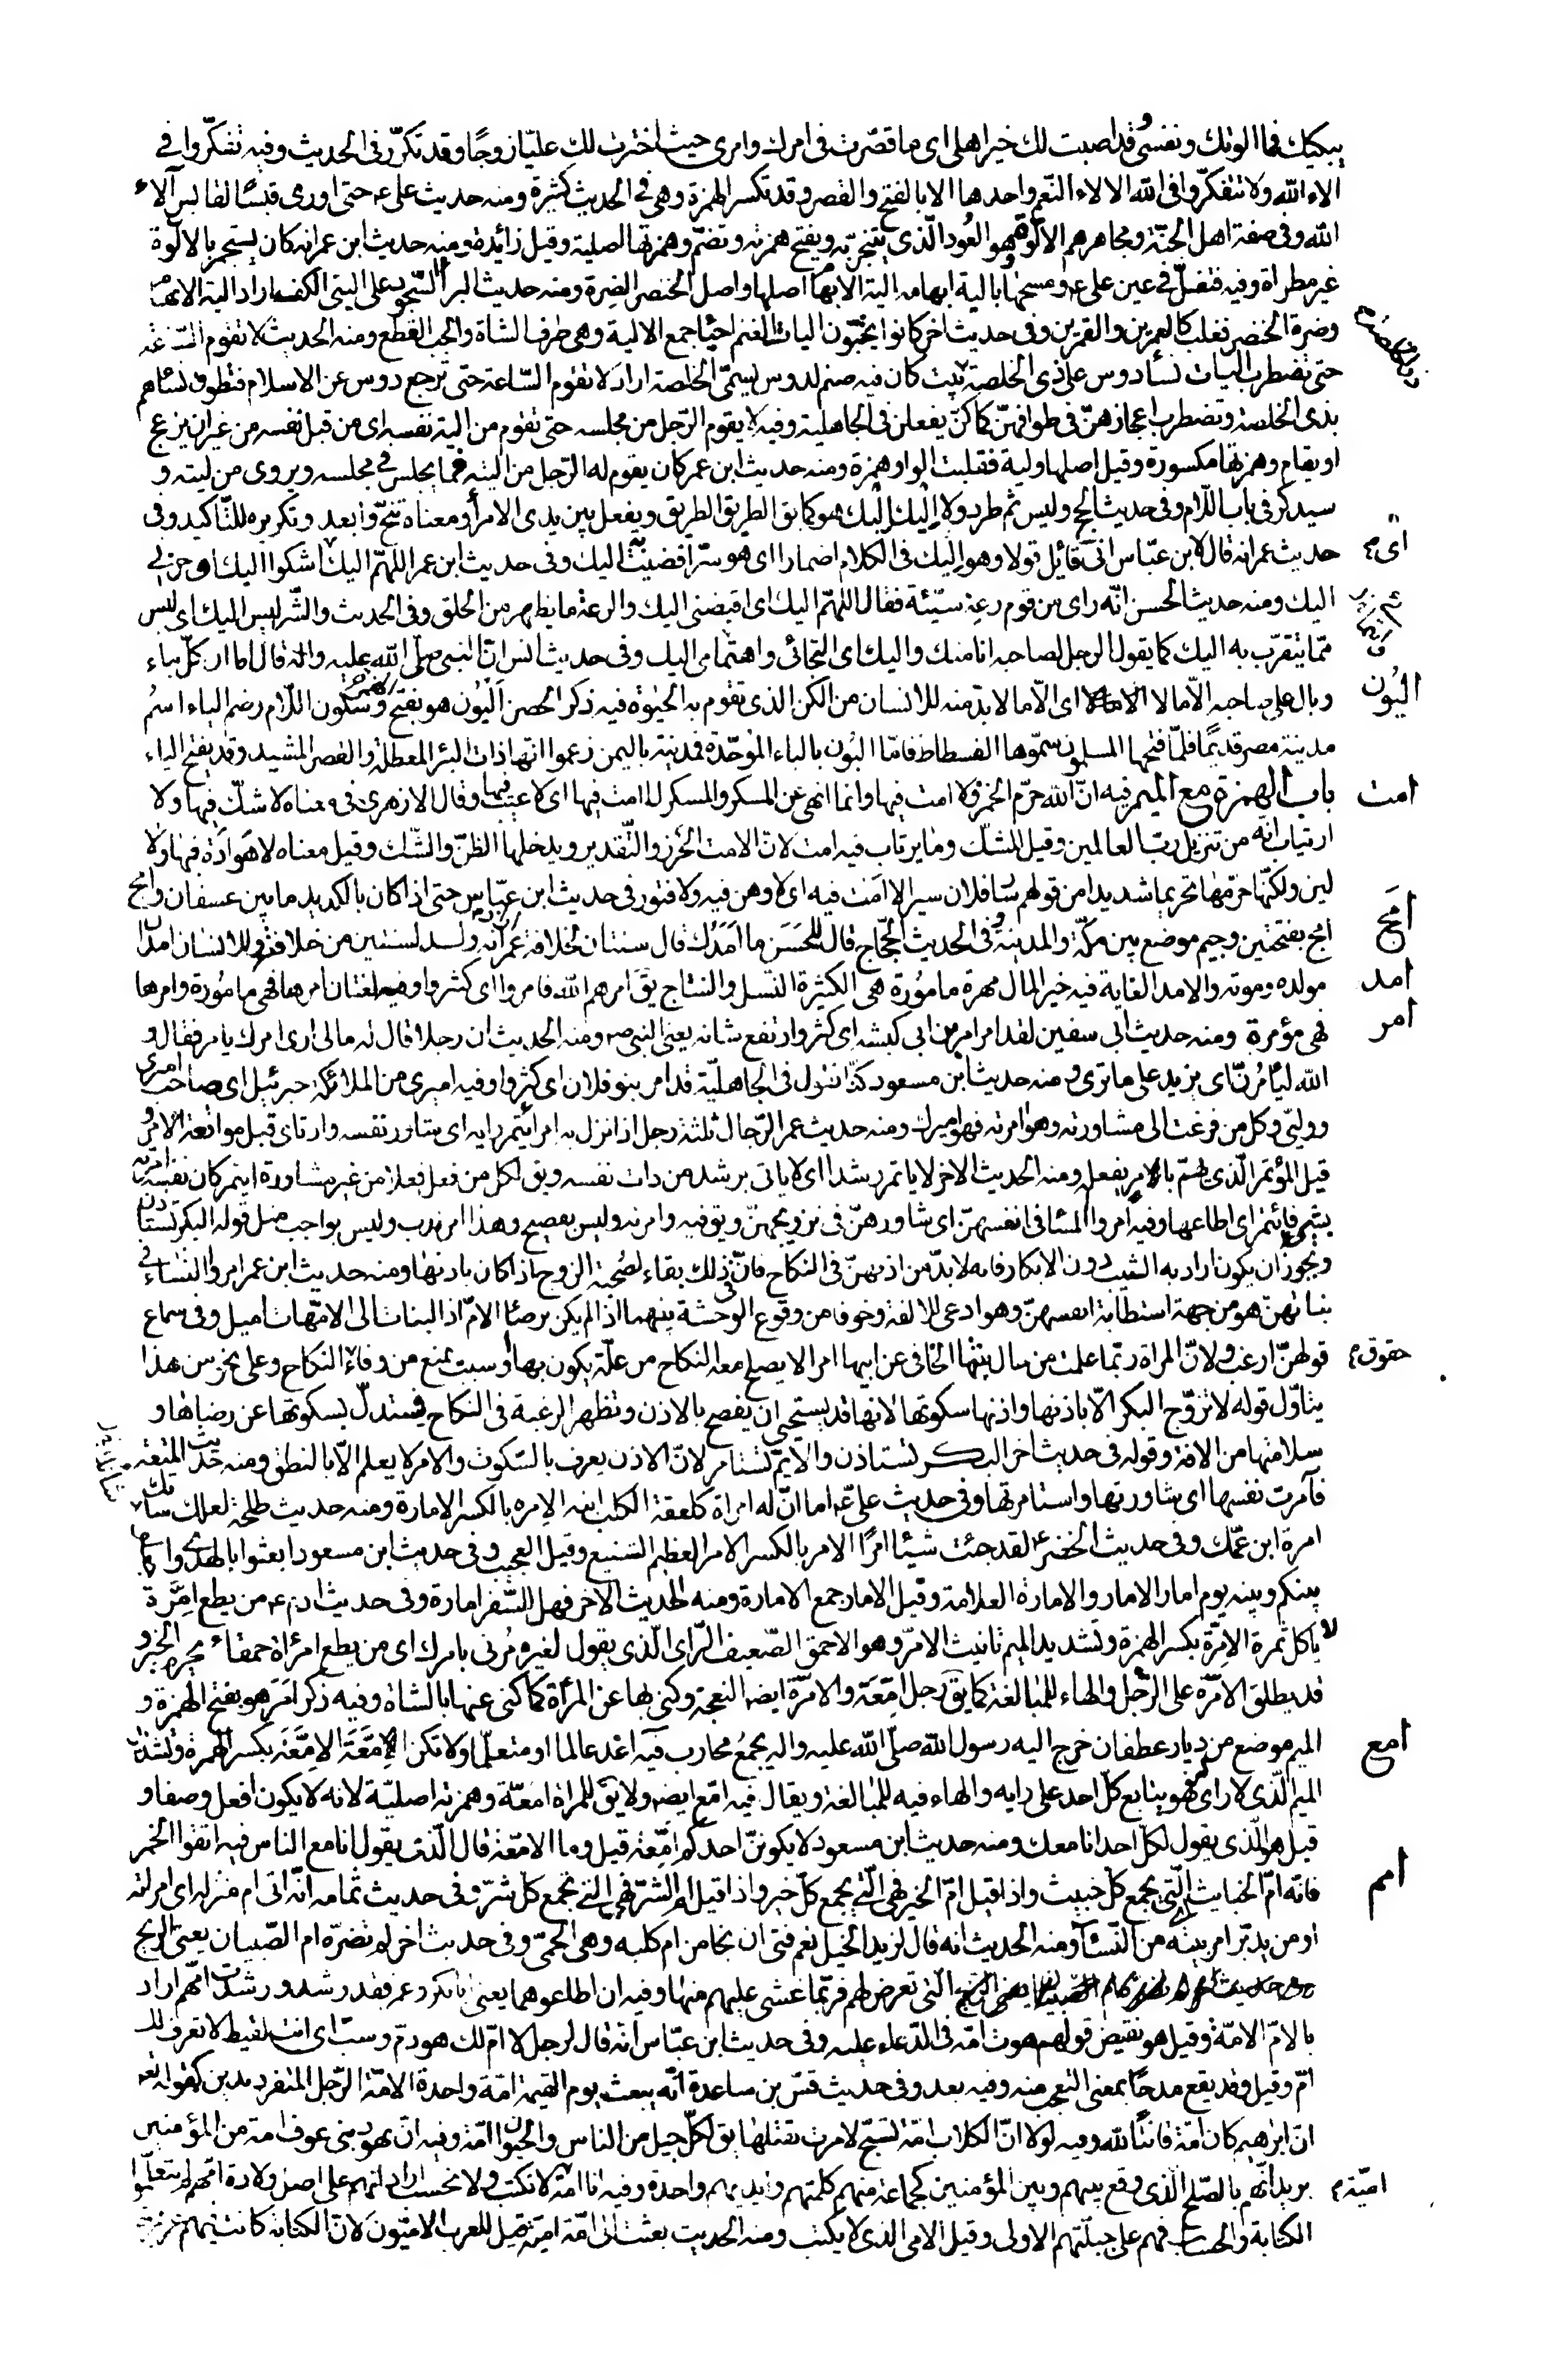 يبكيك فما الوتك ونفسي وقد اصبت لك خير اهلي اي ما قصّرت في امرك وامري حيث اخترت لك عليّا زوجًا وقد تكرّر في الحديث وفيه تفكّروا في
الاء الله ولا تتفكّروا في الله الالاء النّعم واحدها الا بالفتح والقصر وقد تكسر الهمزة وهي في الحديث كثيرة ومنه حديث علي ع حتى اورى قبسًا لقابس آلاء
الله وفي صفة اهل الجنّة ومجامرهم الالوّة هو العُود الّذي يتبخّر به ويفتح همزته وتضمّ وهمزتها اصلية وقيل زائدة ومنه حديث ابن عمر انه كان يستجمر بالالوّة
غير مطراة وفيه فتفل في عين علي ع ومسحها بالية ابهامه الية الابهام اصلها واصل الخنصر الضرة ومنه حديث البرا السّجود على اليتي الكف اراد الية الابهام
وضرة الخنصر فغلب كالعمرين والقمرين وفي حديث اخر كانوا يجتبّون اليات الغنم احيا جمع الالية وهي طرف الشاة والجب القطع ومنه الحديث لا تقوم السّاعة
حتى تضطرب اليات نسأ دوس على ذي الخلصة بيت كان فيه صنم لدوس يسمّى الخلصة اراد لا تقوم السّاعة حتى ترجع دوس عن الاسلام فتطوف نساؤهم
بذي الخلصة وتضطرب اعجازهنّ في طوافهنّ كما كنّ يفعلن في الجاهلية وفيه لا يقوم الرّجل من مجلسه حتى تقوم من الية نفسه اي من قبل نفسه من غير ان يزعج
او يقام وهمزتها مكسورة وقيل اصلها ولية فقلبت الواو همزة ومنه حديث ابن عمر كان يقوم له الرّجل من اليته فما يجلس في مجلسه ويروى من ليته و
سيذكر في باب اللّام وفي حديث الحج وليس ثم طرد ولا اليك اليك هو كما يق الطريق الطريق ويفعل بين يدي الامرأ ومعناه تنحّ وابعد وتكريره للتّاكيد وفي
اي م حديث عمر انه قال لابن عبّاس اني قائل قولا وهو اليك في الكلام اضمار اي هو سرّ افضيت به اليك وفي حديث ابن عمر اللهمّ اليك اي اشكوا اليك او خذني
اليك ومنه حديث الحسن انّه راى من قوم رعة سيّئة فقال اللهمّ اليك اي اقبضني اليك والرعة ما يظهر من الخلق وفي الحديث والشّر ليس اليك اي ليس
ممّا يتقرّب به اليك كما يقول الرجل لصاحبه انا منك واليك اي التجائي وانتمائي اليك وفي حديث انس انّ النبي صلى الله عليه واله قال اما ان كلّ بناء
اليُون وبال على صاحبه الّا ما لا الّا ما لا اي الّا ما لا بدّ منه للانسان من الكن الذي تقوم به الحيوة فيه ذكر الحصن اَليُون هو بفتح الهمزة وسكون اللّام وضم الياء اسمُ
مدينة مصر قديمًا فلمّا فتحها المسلمون سمّوها الفسطاط فامّا البُون بالباء الموحّدة فمدينة باليمن زعموا انها ذات البئر المعطلة والقصر المشيد وقد يفتح الباء
امت باب الهمزة مع الميم فيه انّ الله حرّم الخمر فلا امت فيها وانما انهى عن السكر والمسكر لا امت فيها اي لا عيب فيها وقال الازهري في معناه لا شكّ فيها ولا
ارتياب انه من تنزيل ربّ العالمين وقيل للشكّ وما يرتاب فيه امت لانّ الامت الحُزر والتّقدير ويدخلها الظنّ والشّك وقيل معناه لا هَوادَة فيها ولا
لين ولكنّها حرّمها تحريما شديدا من قولهم سافلان سيرا لا اَمت فيه اي لا وهن فيه ولا فتور في حديث ابن عبّاس حتى اذا كان بالكديد ما بين عسفان وامج
اَمَج امج بفتحتين وجيم موضع بين مكّة والمدينة وفي الحديث الحجّاج قال للحَسَن ما اَمَدُك قال سنتان لخلافة عمر اراد انه ولد لسنتين من خلافته وللانسان امدان
امد مولده وموته والامد الغاية فيه خير المال مهرة مامُورة هي الكثيرة النّسل والنتاج يق امرهم الله فامروا اي كثروا وفيه لغتان امرها فهي مامُورة وامرها
امر فهي مؤمرة ومنه حديث ابي سفين لقد امر امر ابن ابي كبشة اي كثر وارتفع شانه يعني النبي ص ومنه الحديث ان رجلا قال له مالي ارى امرك يامر فقال و
الله ليأمرنّ اي يزيد على ما ترى ومنه حديث ابن مسعود كنّا نقول في الجاهليّة قد امر بنو فلان اي كثروا وفيه اميري من الملائكة جبرئيل اي صاحب امري
ووليّي وكل من فزعت الى مشاورته وهوامرته فهو اميرك ومنه حديث عمر الرّجال ثلثة رجل اذا نزل به امر ائتمر رايه اي شاور نفسه وارتاى قبل مواقعة الامر و
قيل المؤتمر الّذي يهمّ بالامر يفعله ومنه الحديث الاخر لا ياتمر رشدا اي لا ياتي برشد من ذات نفسه ويق لكل من فعل فعلا من غير مشاورة ايتمر كان نفسه امرته
بشئ فائتمر اي اطاعها وفيه امروا النسا في انفسهنّ اي شاورهنّ في تزويجهنّ ويق فيه وامرته وليس بفصيح وهذا امر ندب وليس بواجب مثل قوله البكر تستاذن
ويجوز ان يكون اراد به الثيّب دون الابكار فانه لا بدّ من اذنهنّ في النكاح فانّ في ذلك بقاء لصُحبة الزوج اذا كان باذنها ومنه حديث ابن عمر امروا النّساء في
بناتهنّ هو من جهة استطابة انفسهنّ وهو ادعى للالفة وخوفا من وقوع الوحشة بينهما اذا لم يكن برضا الامّ اذ البنات الى الامّهات اميل وفي سماع
قولهنّ ارغب ولانّ المراة ربّما علمت من حال بنتها الخافي عن ابيها امرا لا يصلح معه النكاح من علّة يكون بها او سبب يمنع من وفاء حقوق م النكاح وعلى نحو من هذا
يتاوّل قوله لا تزوّج البكر الّا باذنها واذنها سكوتها لانها قد يستحيي ان يفصح بالاذن وتظهر الرغبة في النكاح فيستدلّ بسكوتها عن رضاها و
سلامتها من الافة وقوله في حديث اخر البكر تستاذن والايّم تستامر لانّ الاذن يعرف بالسّكوت والامر لا يعلم الّا بالنطق ومنه حديث المتعة
فآمرت نفسها اي شاورتها واستامرتها وفي حديث عليّ ع اما انّ له امراة كلعقة الكلب ابنه الاِمرة بالكسر الامارة ومنه حديث طلحة لعلك سائتك
امرة ابن عمّك وفي حديث الخضر ع لقد جئت شيئا امرًا الامر بالكسر الامر العظيم الشنيع وقيل العجيب وفي حديث ابن مسعود ابعثوا بالهدي واجعلوا
بينكم وبينه يوم امار الامار والامارة العلامة وقيل الامار جمع الامارة ومنه الحديث الاخر فهل للسّفر امارة وفي حديث ادم ع من يطع اِمَّرة
لا ياكل ثمرة الاِمّرة بكسر الهمزة وتشديد الميم تانيث الامّر وهو الاحمق الضّعيف الرّاى الّذي يقول لغيره مُرني بامرك اي من يطع امرأة حمقاء يحرم الخير و
قد يطلق الامّرة على الرّجل والهاء للمبالغة كما يق رجل اِمّعَة والامّرة ايضا النعجة وكنى بها عن المرأة كما كنى عنها بالشاة وفيه ذكر اَمَر هو بفتح الهمزة و
امع الميم موضع من ديار غطفان خرج اليه رسول الله صلّى الله عليه واله يجمعُ محارب فيه اغد عالما او متعلّما ولا تكن اِمّعَة الاِمّعَة بكسر الهمزة وتشديد
الميم الّذي لا راى له فهو يتابع كلّ احد على رايه والهاء فيه للمبالغة ويقال فيه امّع ايضا ولا يق للمراة امّعَة وهمزته اصليّة لانه لا يكون افعل وصفا و
قيل هو الّذي يقول لكلّ احد انا معك ومنه حديث ابن مسعود لا يكوننّ احدكم امّعة قيل وما الامّعة قال الّذي يقول انا مع الناس فيه اتقوا الخمر
امم فانه امّ الخبايث الّتي يجمع كلّ خبيث واذا قيل امّ الخير فهي الّتي يجمع كلّ خير واذا قيل امّ الشرّ فهي الّتي تجمع كلّ شرّ وفي حديث ثمامة انّه اتى ام منزله اي امراته
او من يدبّر امر بيته من النّسآ ومنه الحديث انه قال لزيد الخيل نعم فتى ان نجا من ام كلبه وهي الحمّى وفي حديث اخر لم تضرّه ام الصّبيان يعني الريح
الّتي تعرض لهم فربّما غشى عليهم منها وفيه ان اطاعوهما يعني ابا بكر وعمر فقد رشدوا ورشدت امّهم اراد
بالامّ الامّة وقيل هو نقيض قولهم هوت امّه في الدّعاء عليه وفي حديث ابن عبّاس انه قال لرجل لا امّ لك هو ذم وسبّ اي انت لقيط لا تعرف لك
امّ وقيل وقد يقع مدحًا بمعنى التعجب منه وفيه بعد وفي حديث قسّ بن ساعدة انّه يبعث يوم القيمة امّة واحدة الامّة الرّجل المنفرد بدين كقوله تع
انّ ابراهيم كان امّة قانتًا لله وفيه لولا انّ الكلاب امّة تسبّح لامرت بقتلها يق لكلّ جيل من الناس والحيوان امّة وفيه ان يهود بني عوف امة من المؤمنين
يريد انّهم بالصّلح الّذي وقع بينهم وبين المؤمنين كجماعة منهم كلمتهم وايديهم واحدة وفيه انا امّة امّيّة م لا نكتب ولا نحسب اراد انهم على اصل ولادة امّهم لم يتعلّموا
الكتابة والحساب فهم على جبلّتهم الاولى وقيل الامي الذي لا يكتب ومنه الحديث بعثت الى امّة امّيّة قيل للعرب الامّيّون لانّ الكتابة كانت فيهم عزيزة